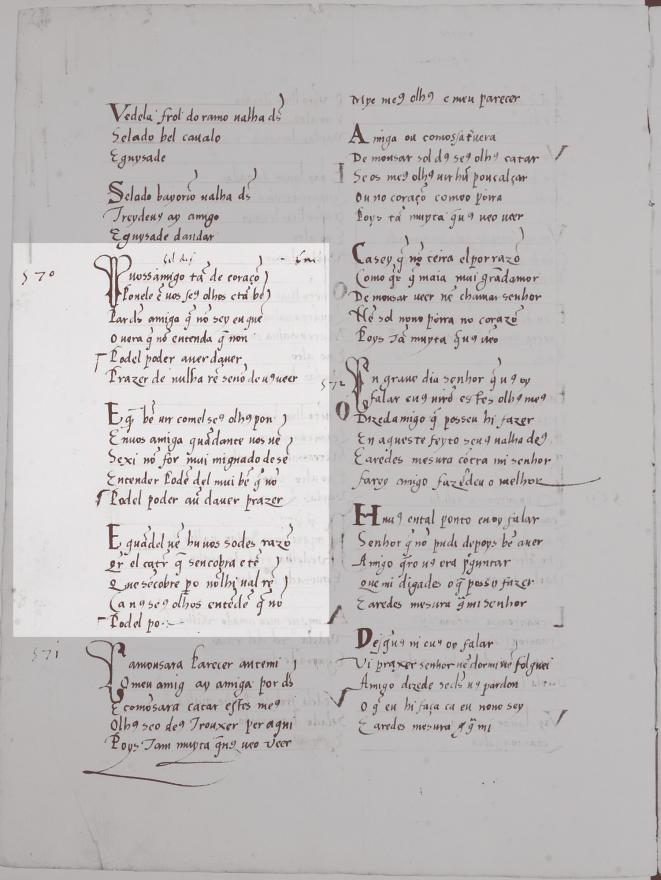 Vedela frol do ramo valha ds
Selado bel cavalo
E guysade
Selado bayorio valha ds
Treydeus ay amigo
E guysade dandar
570
uossamigo tã de coraçõ
Põnele ẽ uos seg olhos e tã bẽ
Par ds amiga q̃ nõ sey eu que
O uera q̃ nõ entenda q̃ non
Podel poder auer dauer
Prazer de nulha rẽ senõ de ug veer
E q̃ bẽ uir comel seg olhg pon
En uos amiga quãdante uos uẽ
Se xi nõ for mui mignado de se
Entender Podẽ del mui bẽ q̃ nõ
Podel poder au dauer prazer
E quãdel uẽ hu uos sodes razõ
q̃r el catr q̃ sencobra e tẽ
Que sẽcobre po nõlhi val rẽ
Ca ng seg olhos entẽdẽ q̃ nõ
Podel po
571
amousara Parecer antemi
O meu amig ay amiga por ds
E comousara catar estes meg
Olhg seo deg Trouxer per aqui
Poys Tam muyta q̃ ng ueo veer
Mye meg olhg e meu parecer
Amiga ou comossatuera
De mousar sol dg seg olhg catar
Se os meg olhg uir hũ pouc alçar
Ou no coraçõ comoo porra
Poys tã muyta q̃ ug ueo ueer
Ca sey q̃ nõ teira el por razõ
Como q̃r q̃ maia mui grãdamor
De mousar veer nẽ chamar senhor
Nẽ sol nono porra no corazõ
Poys Tã muyta q̃ ug ueo
572
n grave dia senhor q̃ ug oy
falar e ug uirõ estes olhg meg
Dized amigo q̃ posseu hi fazer
En aqueste feyto seug valha deg
E aredes mesura cõtra mi senhor
Farey amigo fazẽdeu o melhor
Hu ug en tal ponto eu oy falar
Senhor q̃ nõ pudi depoys bẽ auer
Amigo q̃ro ug ora p̃guntar
que mi digades o q̃ posso y fazer
E aredes mesura q̃ mi senhor
Des q̃ ug ui e ug oy falar
Vi praxer senhor nẽ dormi nẽ folguei
Amigo dizede se ds ug pardon
O q̃ eu hi faça ca eu nono sey
E aredes mesura q̃ mi